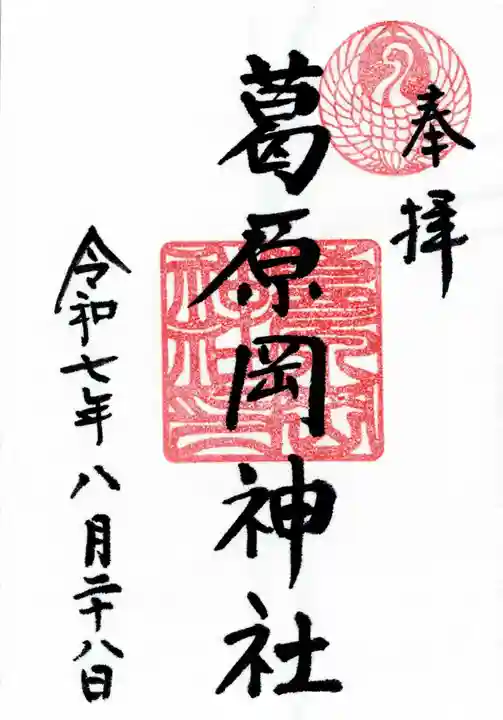 奉拝
葛原岡神社
令和七年八月二十八日